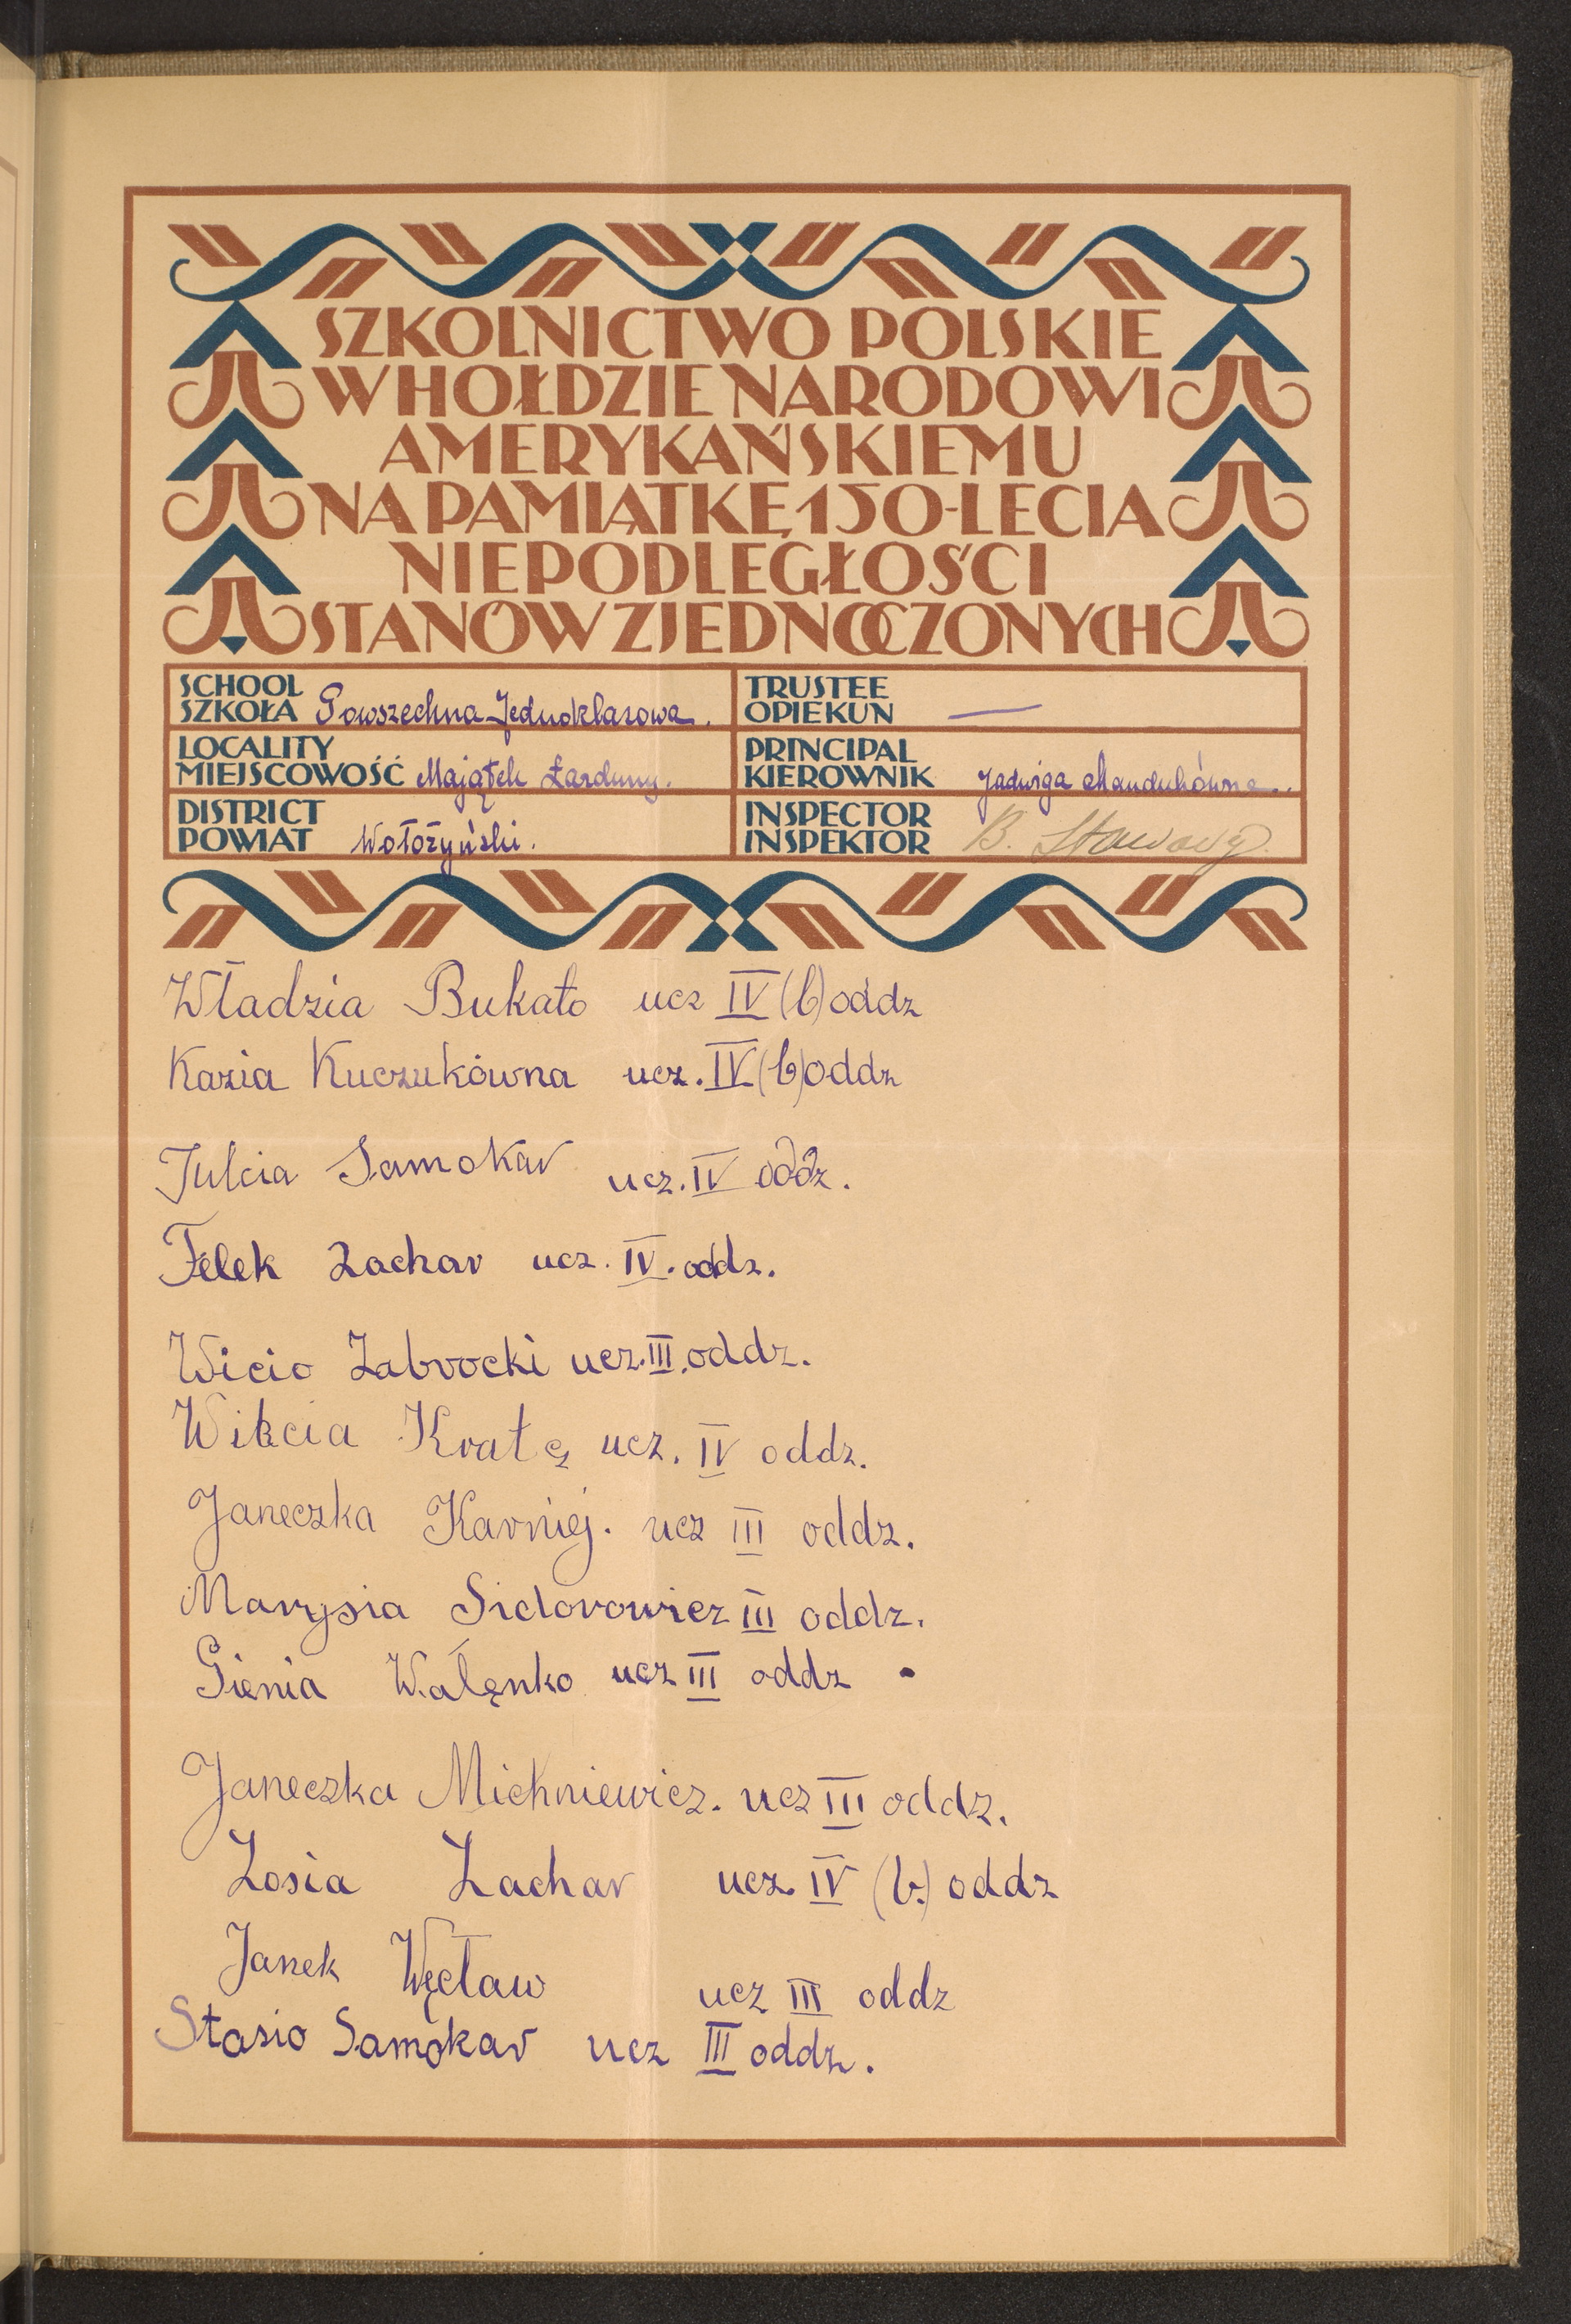 SZKOLNICTWO POLSKIE
W HOŁDZIE NARODOWI
AMERYKAŃSKIEMU
NA PAMIĄTKĘ 150-LECIA
NIEPODLEGŁOŚCI
STANÓW ZJEDNOCZONYCH
SCHOOL
SZKOŁA Powszechna Jednoklasowa.
TRUSTEE
OPIEKUN —
LOCALITY
MIEJSCOWOŚĆ Majątek Łarduny.
PRINCIPAL
KIEROWNIK Jadwiga Mandukówna.
DISTRICT
POWIAT Wołożyński.
INSPECTOR
INSPEKTOR B.
Władzia Bukato ucz IV (b) oddz
Kazia Kuczukówna ucz. IV (b) oddz
Julcia Samokar ucz. IV oddz.
Felek Zachar ucz. IV. oddz.
Wicio Zabrocki ucz. III. oddz.
Wikcia Kratę ucz. IV oddz.
Janeczka Karniej. ucz III oddz.
Marysia Sidorowicz III oddz.
Gienia Wałęnko ucz III oddz .
Janeczka Michniewicz. ucz III oddz.
Zosia Zachar ucz. IV (b.) oddz
Janek Węcław ucz III oddz
Stasio Samokar ucz III oddz.